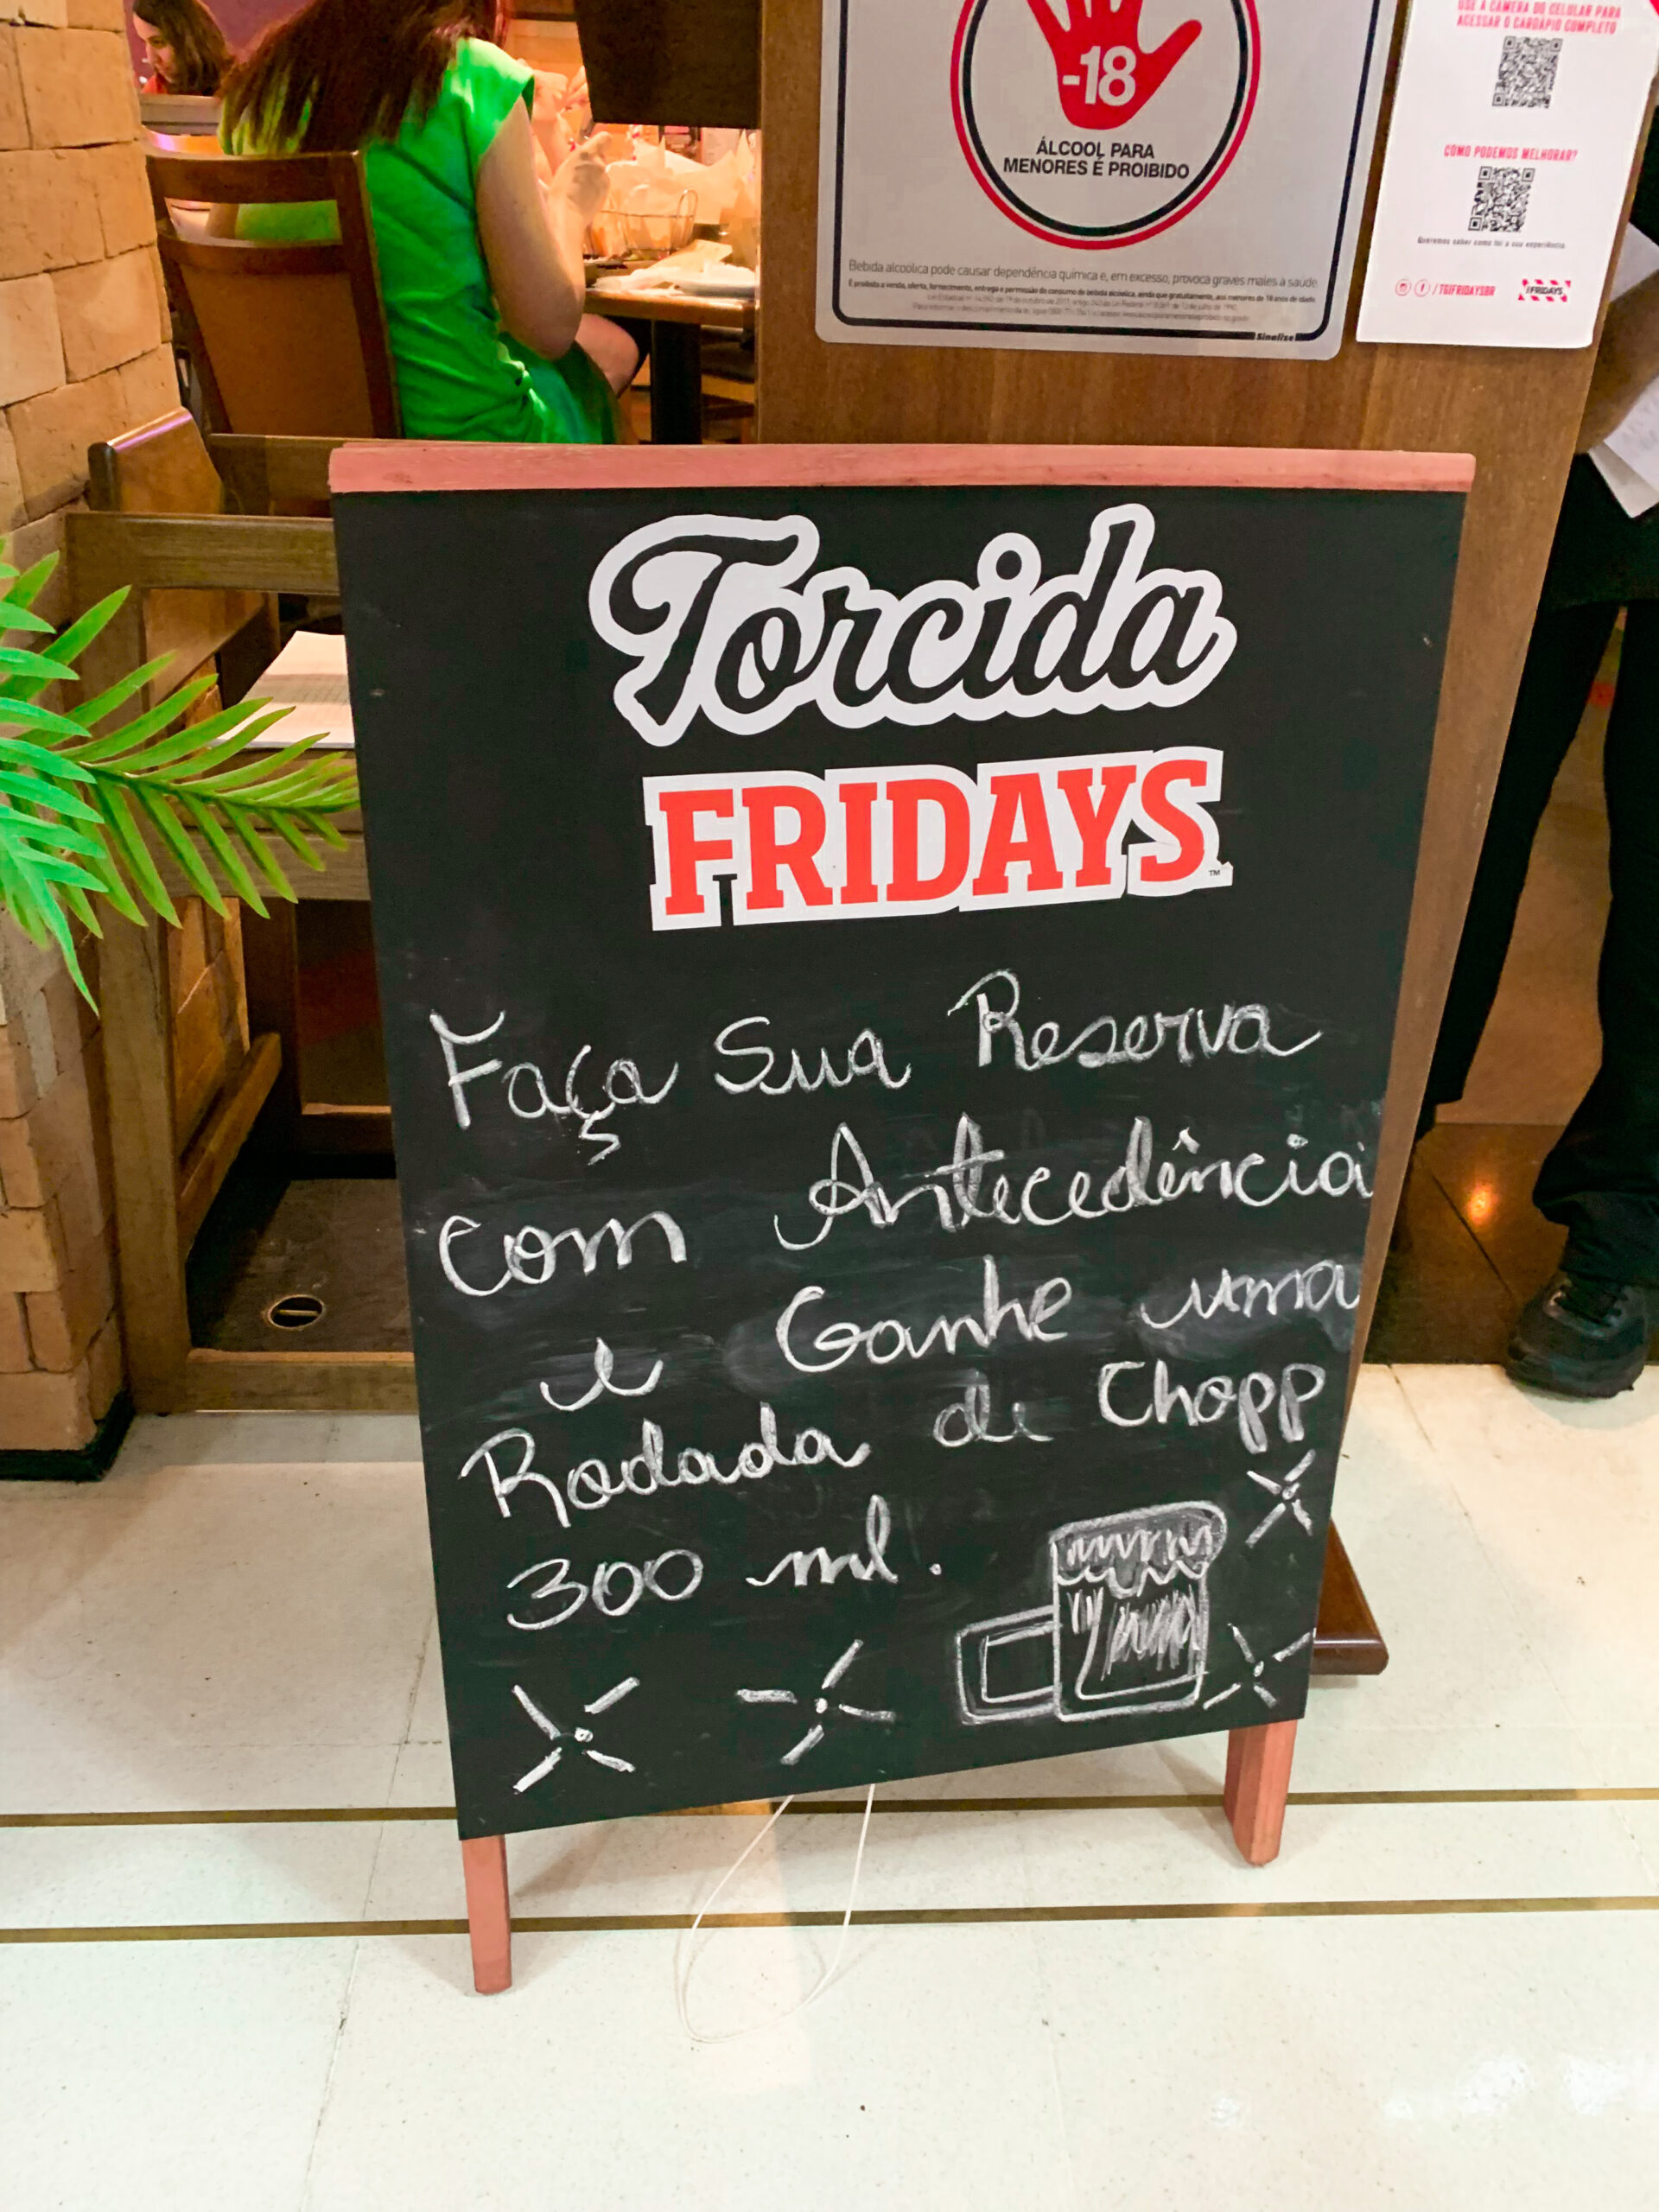 -18
ÁLCOOL PARA
MENORES É PROIBIDO
Bebida alcoólica pode causar dependência química e, em excesso, provoca graves males à saúde.
É proibida a venda, oferta, fornecimento, entrega e permissão do consumo de bebida alcoólica, ainda que gratuitamente, aos menores de 18 anos de idade.
Sinalize
USE A CÂMERA DO CELULAR PARA
ACESSAR O CARDÁPIO COMPLETO
COMO PODEMOS MELHORAR?
Queremos saber como foi a sua experiência.
/TGIFRIDAYSBR
FRIDAYS
Torcida
FRIDAYS™
Faça Sua Reserva
com Antecedência
e Ganhe uma
Rodada de Chopp
300 ml.